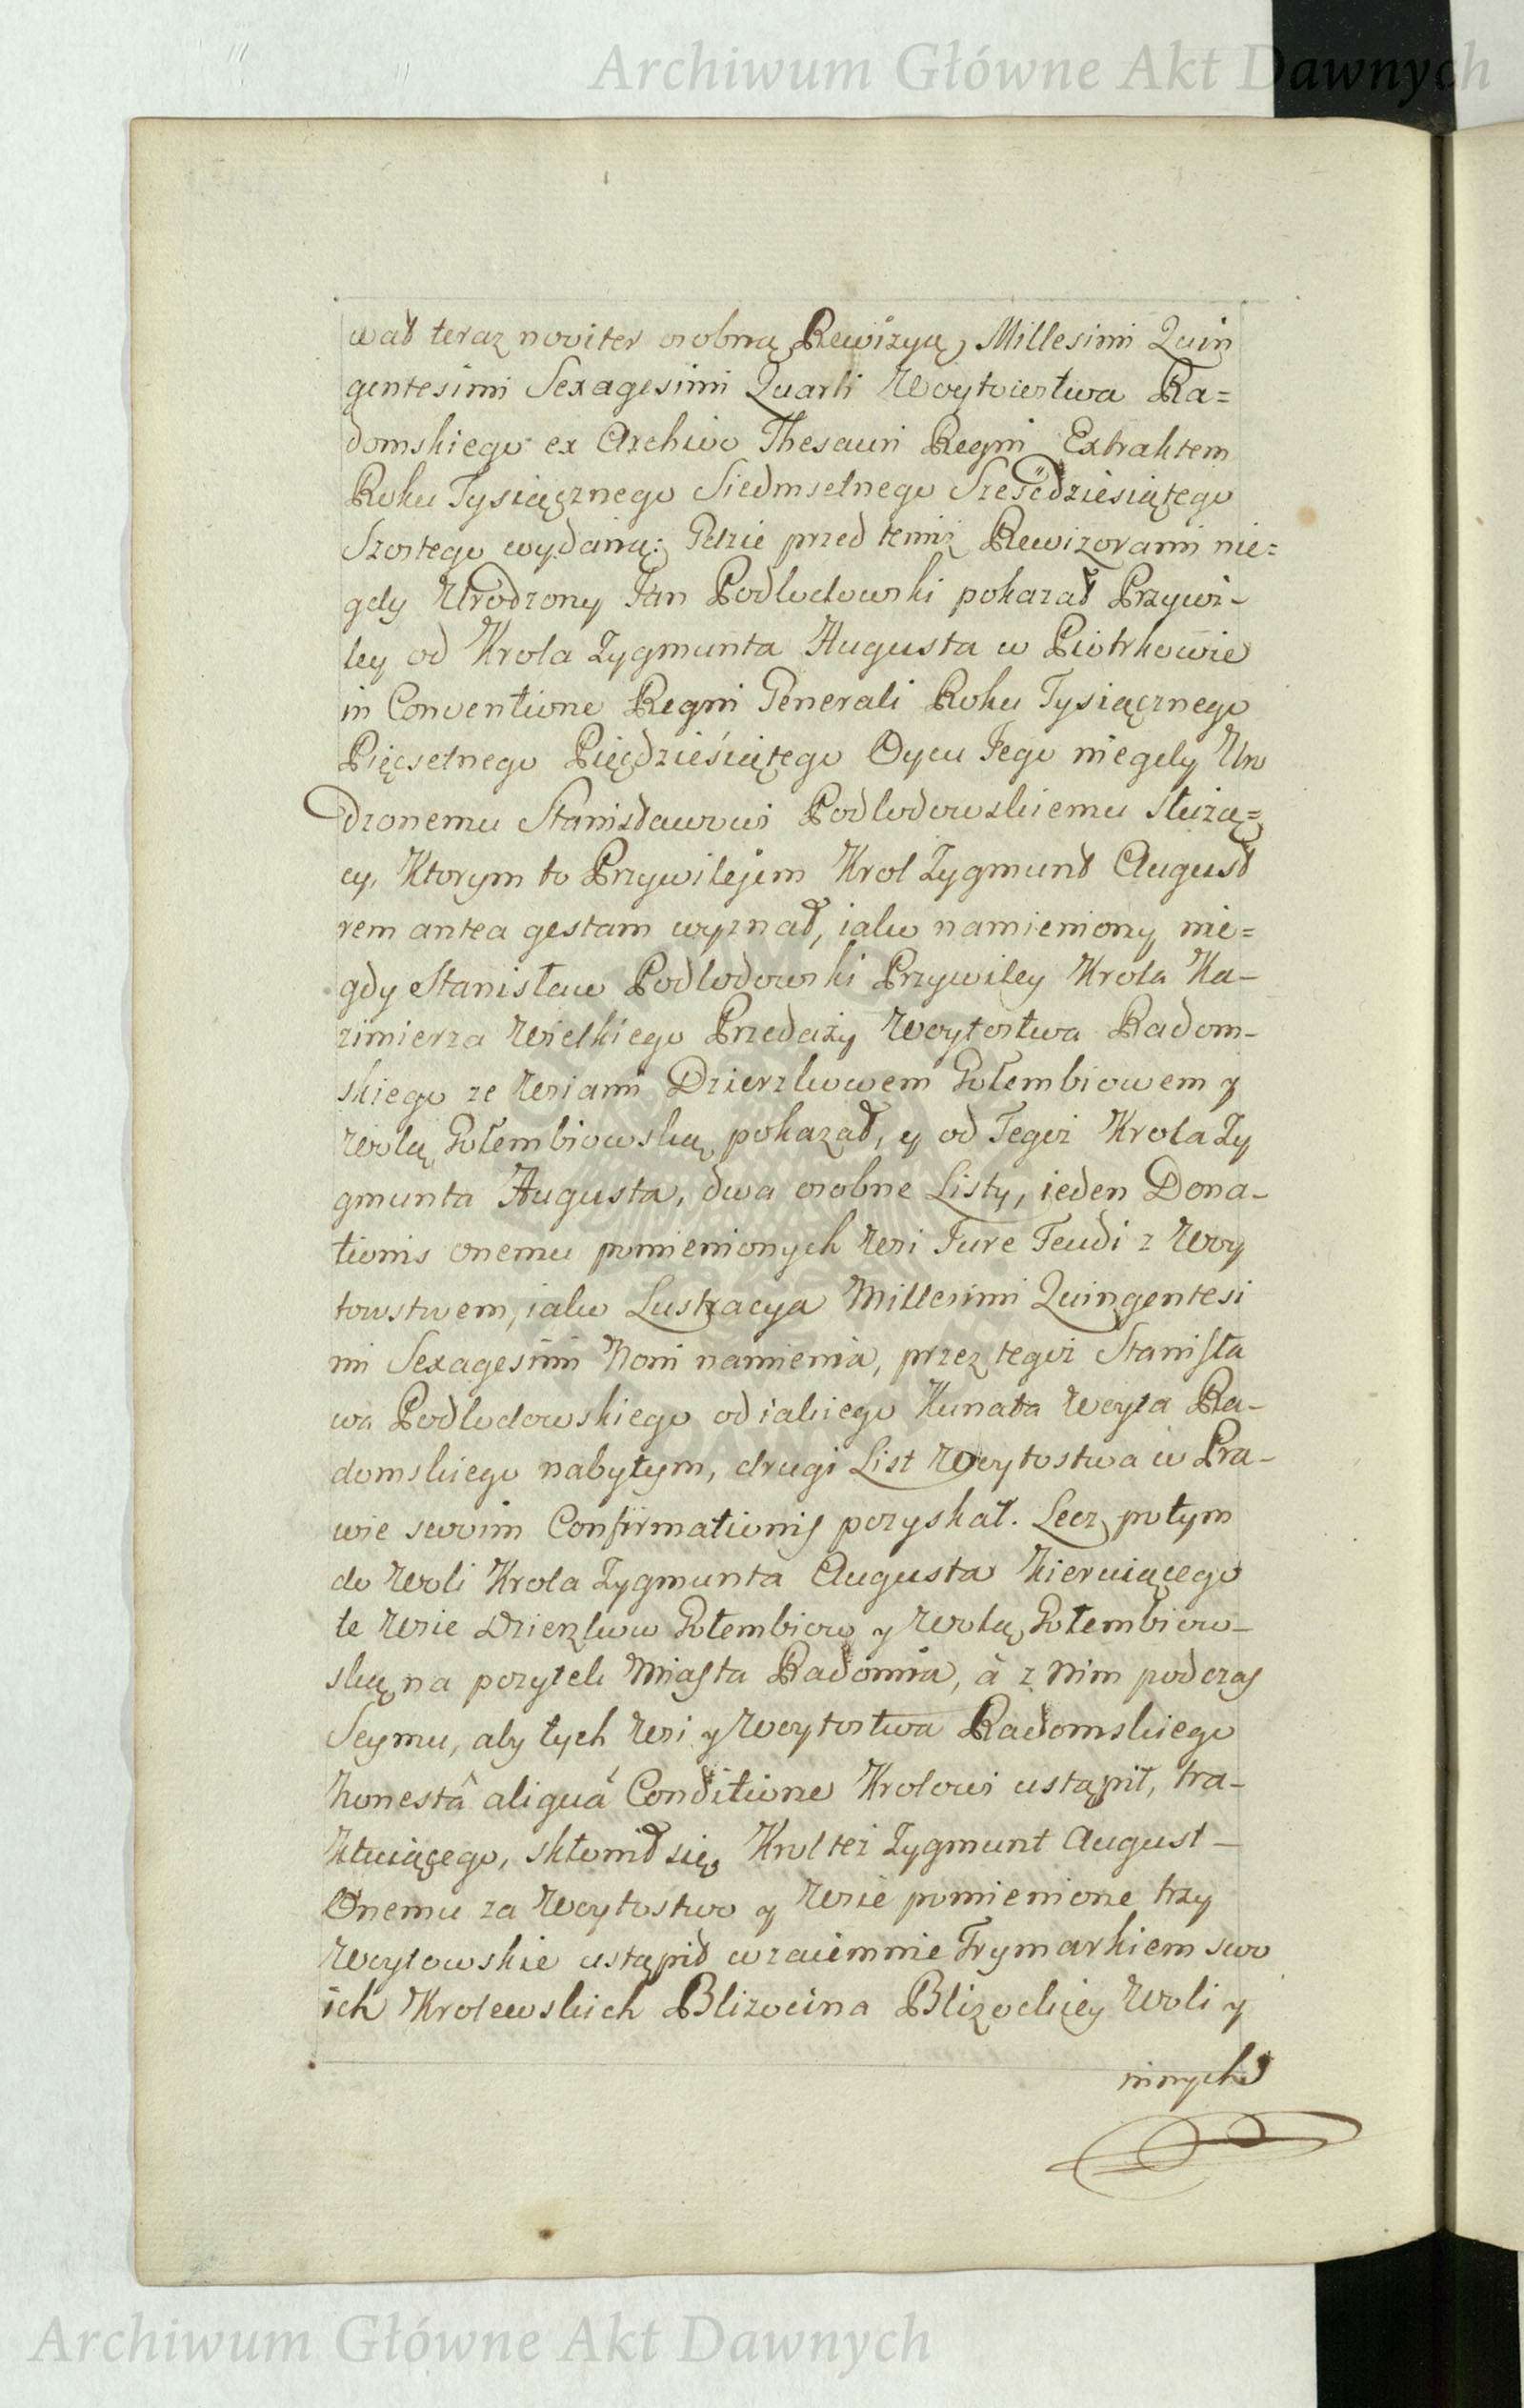 Archiwum Główne Akt Dawnych
wał teraz noviter osobną Rewizyą, Millesimi Quin
gentesimi Sexagesimi Quarti Woytowstwa Ra=
domskiego ex Archivo Thesauri Regni Extraktem
Roku Tysiącznego Siedmsetnego Sześćdziesiątego
Szostego wydaną: Gdzie przed temiż Rewizorami nie=
gdy Urodzony Jan Podlodowski pokazał Przywi-
ley od Krola Zygmunta Augusta w Piotrkowie
in Conventione Regni Generali Roku Tysiącznego
Pięcsetnego Pięćdzieśiątego Oycu Jego niegdy Uro
dzonemu Stanisławowi Podlodowskiemu służą=
cy, Ktorym to Przywilejem Krol Zygmunt August
rem antea gestam wyznał, iako namieniony nie=
gdy Stanisław Podlodowski Przywiley Krola Ka-
zimierza Wielkiego Przedaży Woytostwa Radom-
skiego ze Wsiami Dzierzkowem Gołembiowem y
Wolą Gołembiowską pokazał, y od Tegoż Krola Zy
gmunta Augusta, dwa osobne Listy, ieden Dona-
tionis onemu pomienionych Wsi Jure Feudi z Woy
towstwem, iako Lustracya Millesimi Quingentesi
mi Sexagesimi Noni namienia, przez tegoż Stanisła
wa Podlodowskiego od iakiego Kunata Woyta Ra-
domskiego nabytym, drugi List Woytostwa w Pra-
wie swoim Confirmationis pozyskał. Lecz potym
do Woli Krola Zygmunta Augusta kieruiącego
te Wsie Dzierzkow Gołembiow y Wolą Gołembiow-
ską na pozytek Miasta Radomia, à z Nim podczas
Seymu, aby tych Wsi y Woytostwa Radomskiego
honestâ aliquâ Conditione Krolowi ustąpił, tra-
ktuiącego, skłonił się, Krol też Zygmunt August -
Onemu za Woytostwo y Wsie pomienione trzy
Woytowskie ustąpił wzaiemnie Frymarkiem swo
ich Krolewskich Blizocina Blizockiey Woli y
innych
Archiwum Główne Akt Dawnych